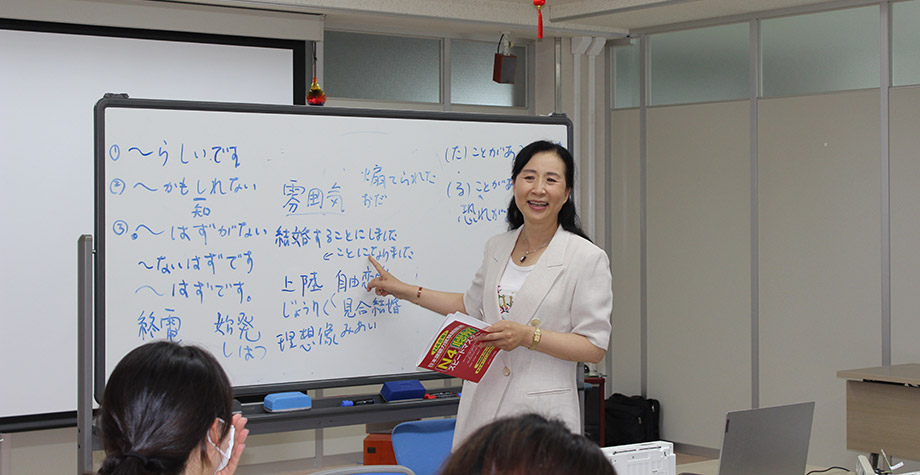 ① 〜らしいです
② 〜かもしれない
知
③。〜はずがない
〜ないはずです
〜はずです。
終電 始発
しはつ
雰囲気
煽てられた
おだ
結婚することにしました
←ことになりました
上陸 自由恋
じょうりく 見合結婚
理想像 みあい
(た) ことがあ
(る) ことがあ
恐れが
N4